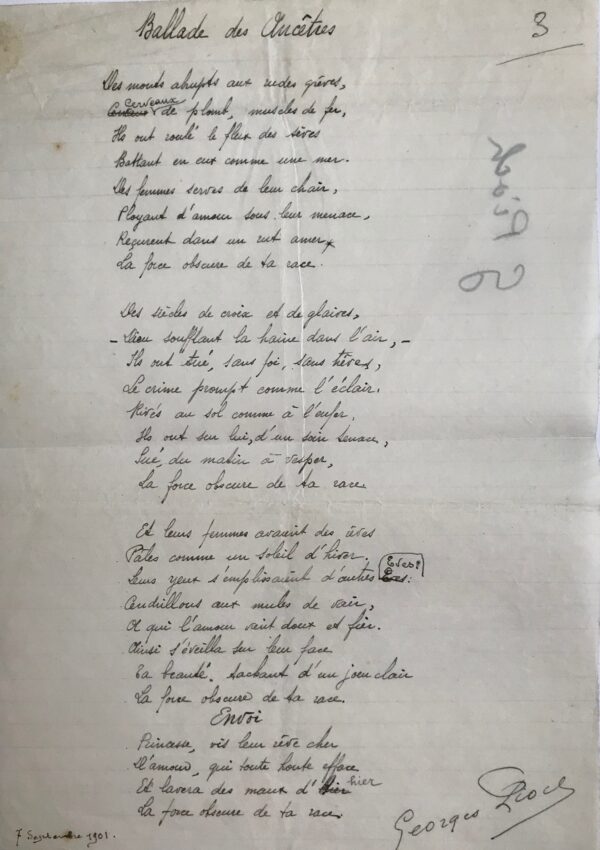 Ballade des Ancêtres
3
Des monts abrupts aux rudes grèves,
Cerveaux de plomb, muscles de fer,
Ils ont roulé le flux des sèves
Battant en eux comme une mer.
Des femmes serves de leur chair,
Ployant d'amour sous leur menace,
Reçurent dans un rut amer
La force obscure de ta race.
Des siècles de croix et de glaives,
– Dieu soufflant la haine dans l'air, –
Ils ont tué, sans foi, sans trêves,
Le crime prompt comme l'éclair.
Rivés au sol comme à l'enfer,
Ils ont sur lui, d'un soin tenace,
Sué, du matin à vesper,
La force obscure de ta race.
Et leurs femmes avaient des rêves
Pâles comme un soleil d'hiver.
Leurs yeux s'emplissaient d'autres Eves:
Eves?
Cendrillons aux mules de vair,
A qui l'amour vait doux et fier.
Ainsi s'éveilla sur leur face
Ta beauté, sachant d'un joeu clair
La force obscure de ta race.
Envoi
Princesse, vis leur rêve cher
D'amour, qui toute honte efface
Et lavera des maux d'hier
hier
La force obscure de ta race.
7 Septembre 1901.
Georges
26